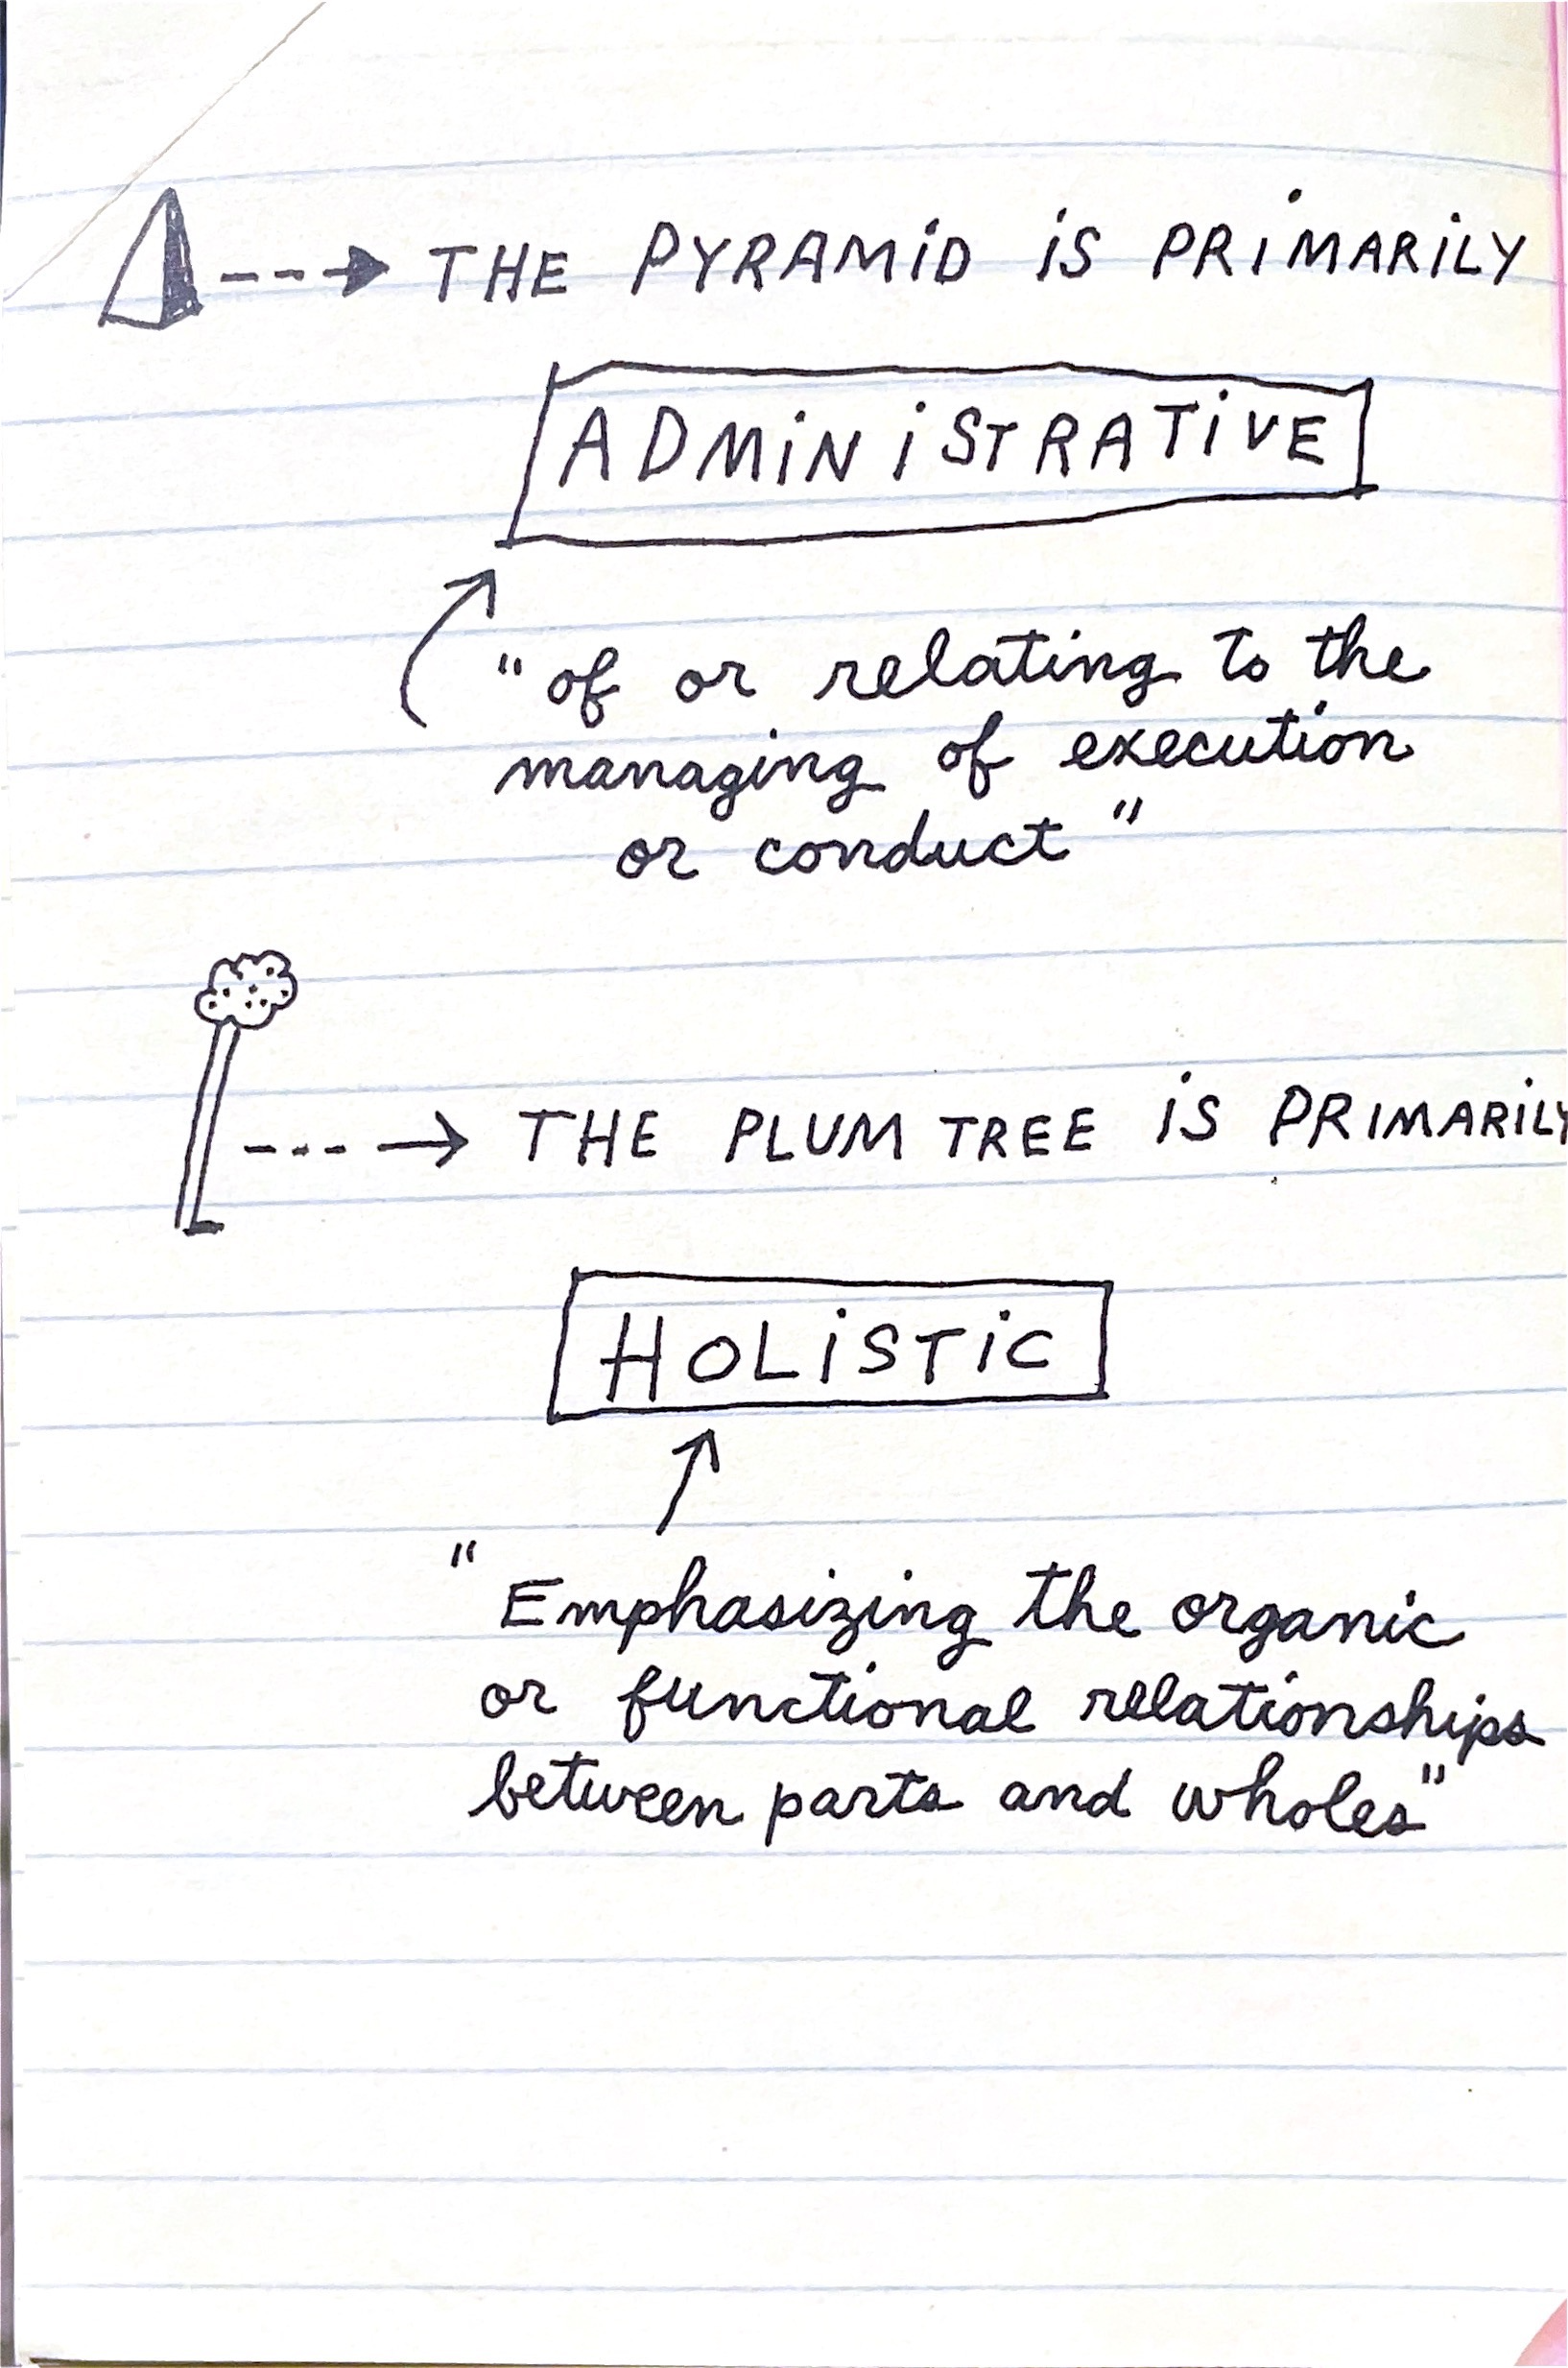 THE PYRAMID IS PRIMARILY
ADMINISTRATIVE
"of or relating to the
managing of execution
or conduct"
THE PLUM TREE IS PRIMARILY
HOLISTIC
"Emphasizing the organic
or functional relationships
between parts and wholes"